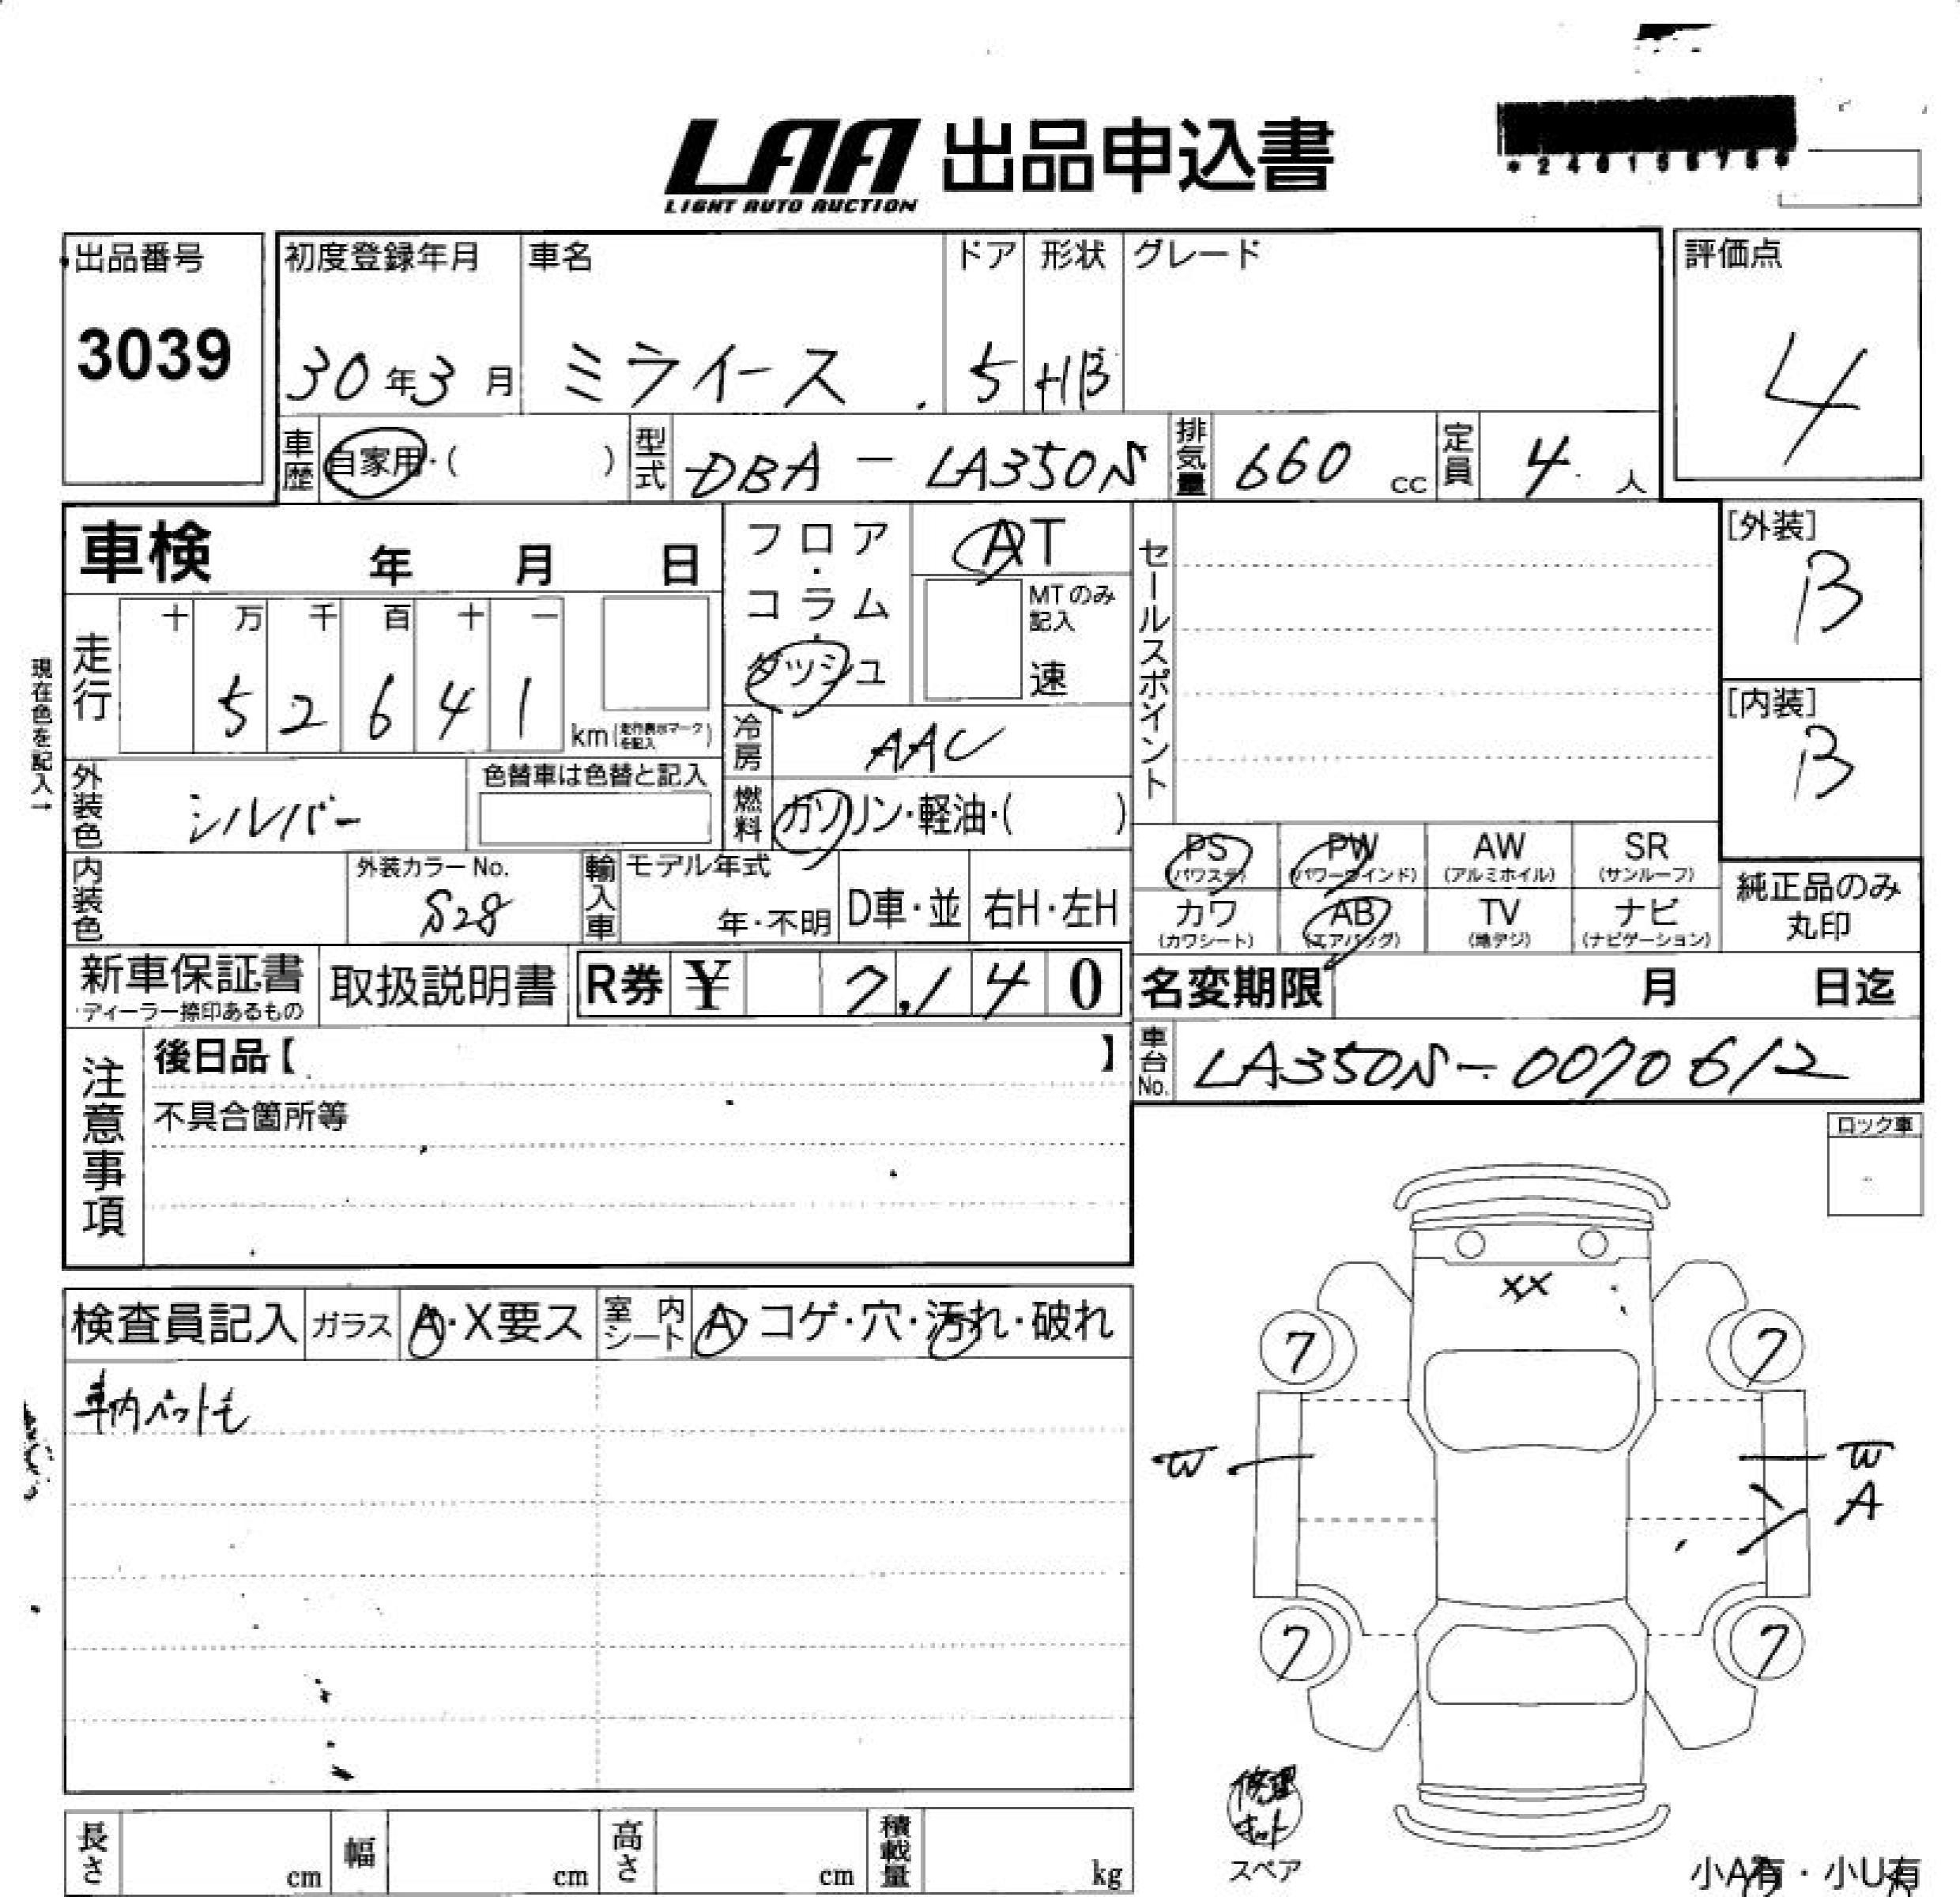 LAA 出品申込書
LIGHT AUTO AUCTION
出品番号
3039
初度登録年月 車名 ドア 形状 グレード
30年3月 ミライース 5 HB
評価点
4
車歴 自家用・( ) 型式 DBA - LA350S 排気量 660 cc 定員 4 人
車検 年 月 日
フロア・コラム・ダッシュ
AT
MTのみ記入
速
セールスポイント
[外装]
B
[内装]
B
現在色を記入→
走行 十 万 千 百 十 一
5 2 6 4 1 km (走行表示マークを記入)
冷房 AAC
燃料 ガソリン・軽油・( )
外装色 シルバー 色替車は色替と記入
内装色 外装カラーNo. S28
輸入車 モデル年式 年・不明 D車・並 右H・左H
PS (パワステ) PW (パワーウインド) AW (アルミホイル) SR (サンルーフ)
カワ (カワシート) AB (エアバッグ) TV (地デジ) ナビ (ナビゲーション)
純正品のみ
丸印
新車保証書 取扱説明書 R券 ¥ 7,140
ディーラー捺印あるもの
名変期限 月 日迄
注意事項
後日品【 】
不具合箇所等
車台No. LA350S-0070612
ロック車
検査員記入 ガラス A・X要ス 室内シート A・コゲ・穴・汚れ・破れ
車内ペット毛
XX
7 7
W W
A
7 7
修理キット
スペア
長さ cm 幅 cm 高さ cm 積載量 kg
小A有・小U有